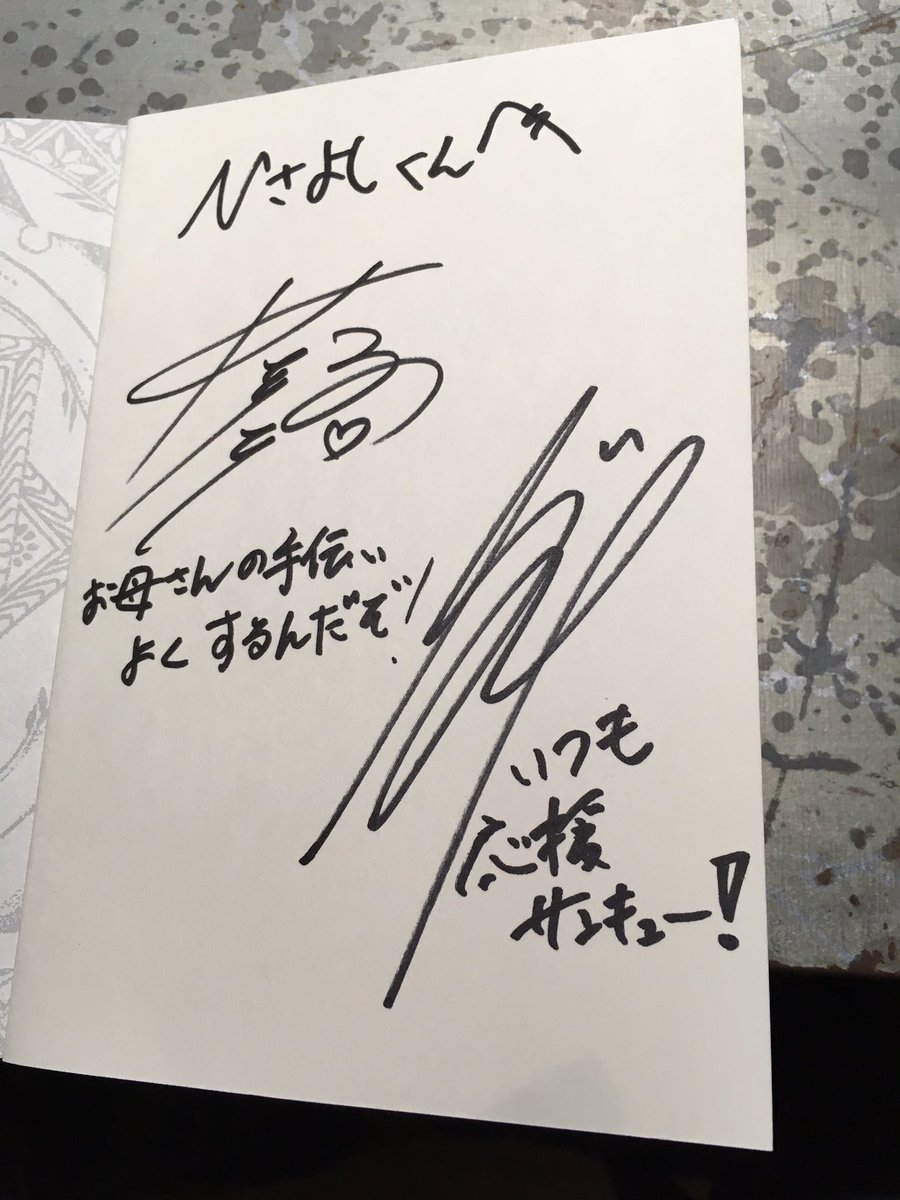 ひさよしくんへ
お母さんの手伝い
よくするんだぞ!
いつも
応援
サンキュー!